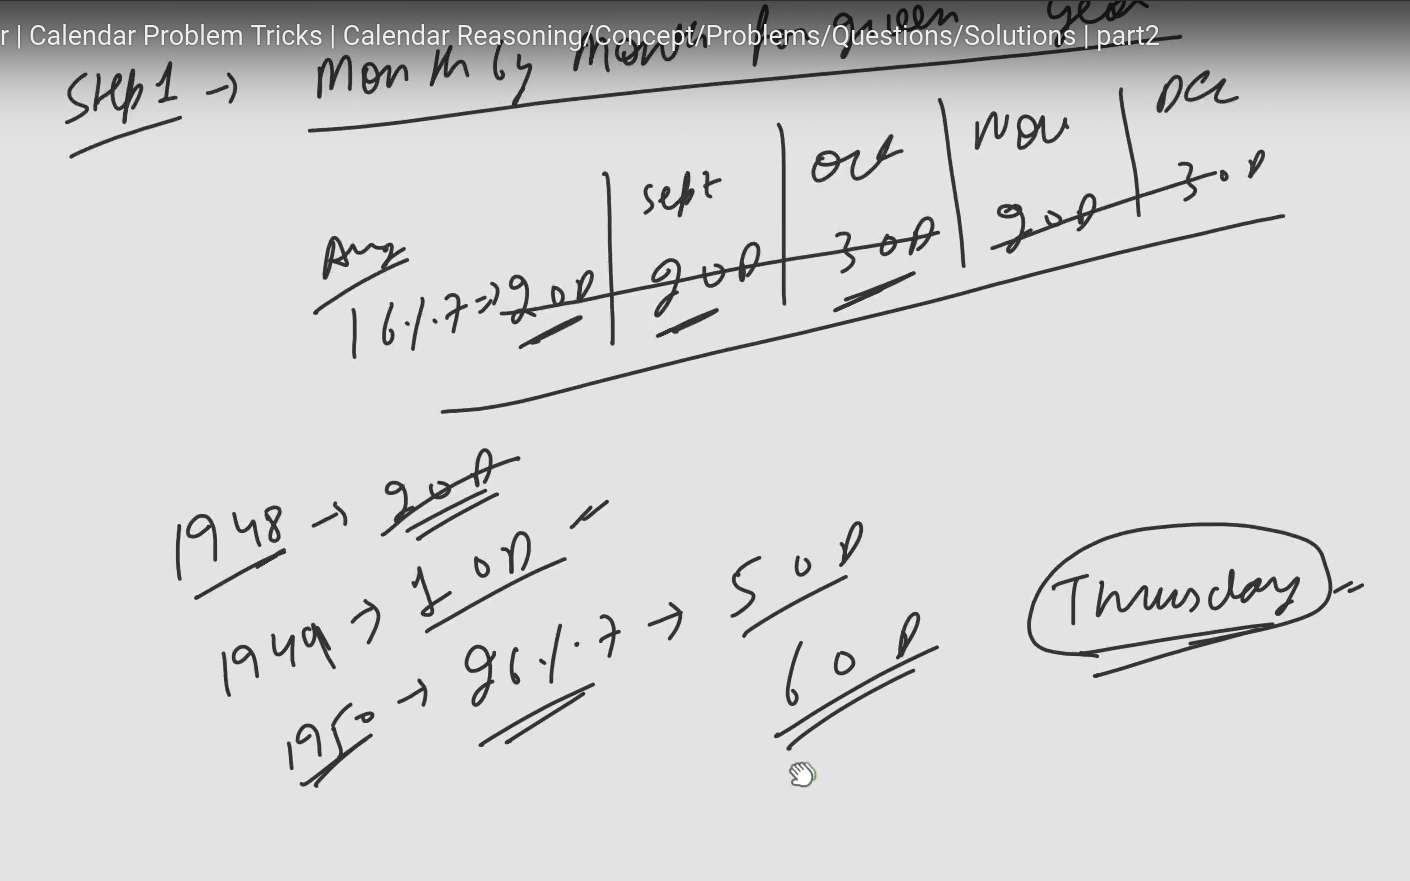 r | Calendar Problem Tricks | Calendar Reasoning/Concept/Problems/Questions/Solutions | part2
Step 1 → Month by Month for given year
Aug | Sept | Oct | Nov | Dec
16 % 7 => 2OD | 2OD | 3OD | 2OD | 3OD
1948 → 2OD
1949 → 1OD
1950 → 26 % 7 → 5OD
6OD
Thursday